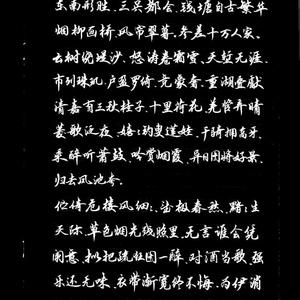 东南形胜、三吴都会、钱塘自古繁华
烟柳画桥、风帘翠幕、参差十万人家、
云树绕堤沙、怒涛卷霜雪、天堑无涯、
市列珠玑、户盈罗绮、竞豪奢、重湖叠巘
清嘉有三秋桂子、十里荷花、羌管弄晴
菱歌泛夜、嬉嬉钓叟莲娃、千骑拥高牙、
乘醉听箫鼓、吟赏烟霞、异日图将好景、
归去凤池夸、
伫倚危楼风细细、望极春愁、黯黯生
天际、草色烟光残照里、无言谁会凭
阑意、拟把疏狂图一醉、对酒当歌、强
乐还无味、衣带渐宽终不悔、为伊消